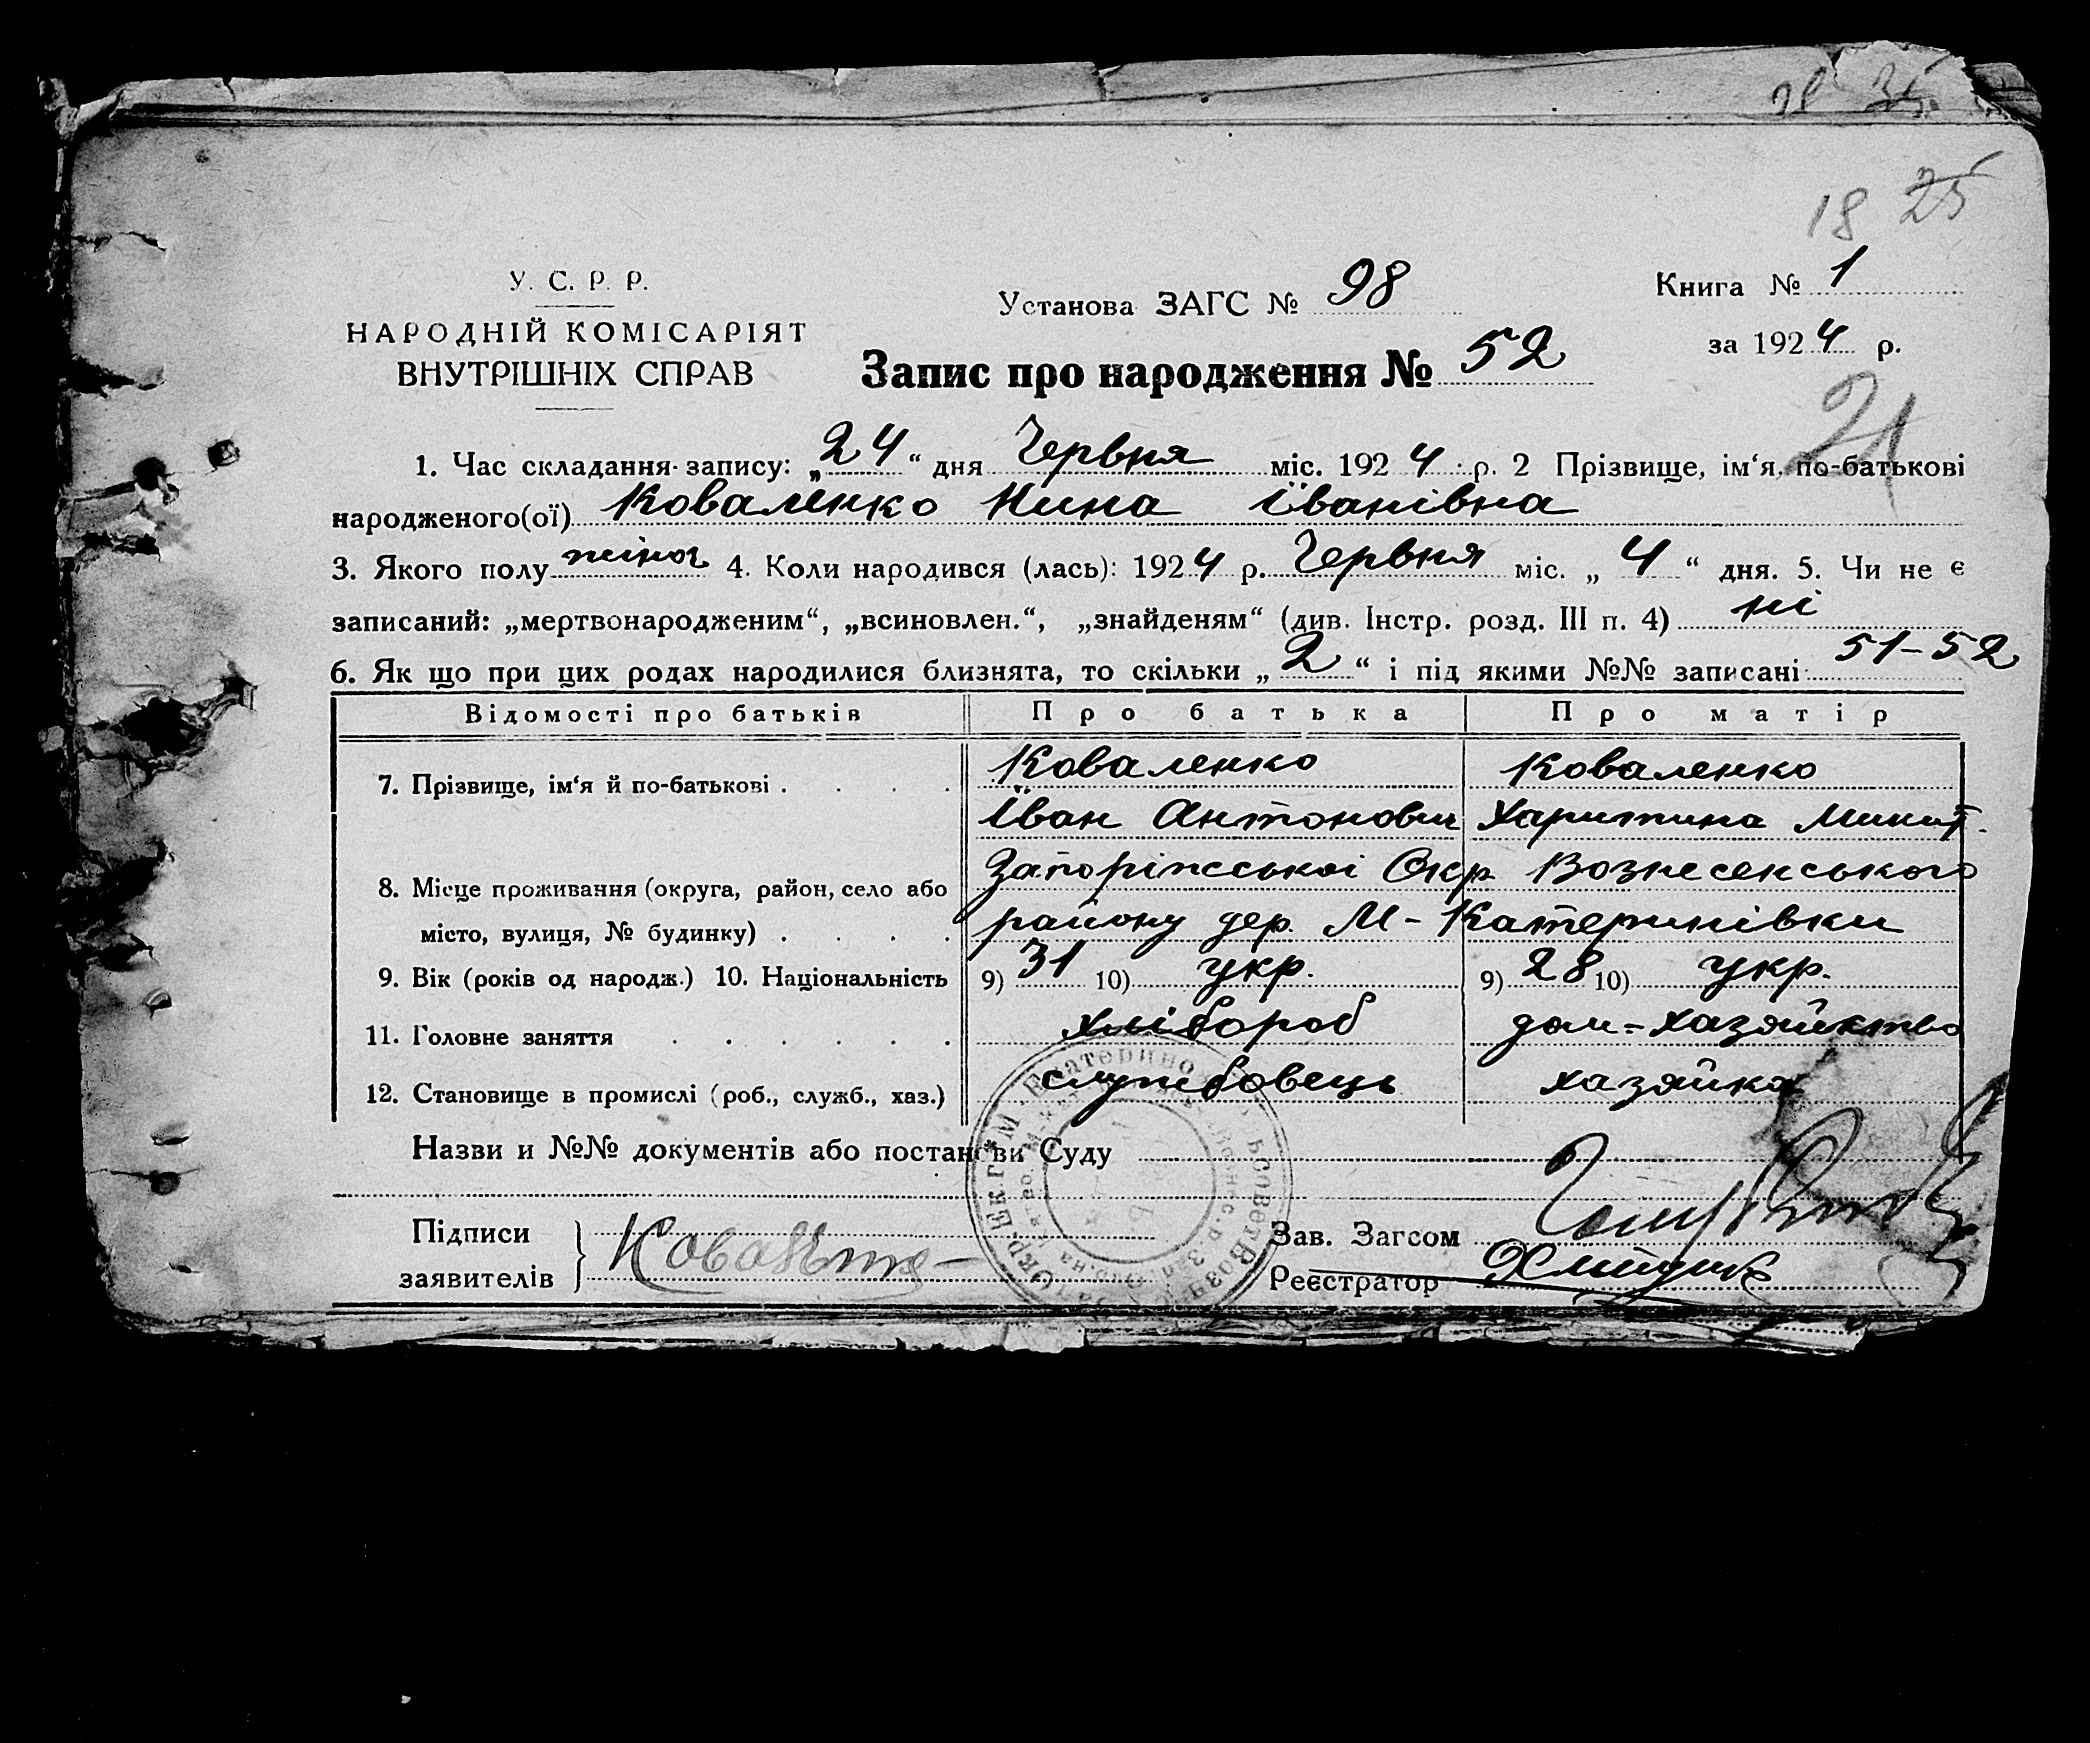 18 25
У. С. Р. Р.
НАРОДНІЙ КОМІСАРІЯТ
ВНУТРІШНІХ СПРАВ
Установа ЗАГС № 98
Книга № 1
за 1924 р.
Запис про народження № 52
21
1. Час складання запису: „24“ дня Червня міс. 1924 р. 2 Прізвище, ім‘я, по-батькові
народженого(ої) Коваленко Нина Іванівна
3. Якого полу жіноч 4. Коли народився (лась): 1924 р. Червня міс. „4“ дня. 5. Чи не є
записаний: „мертвонародженим“, „всиновлен.“, „знайденям“ (див. Інстр. розд. III п. 4) ні
6. Як що при цих родах народилися близнята, то скільки „2“ і під якими №№ записані 51-52
Відомості про батьків Про батька Про матір
7. Прізвище, ім‘я й по-батькові Коваленко Коваленко
Іван Антонович Харитина Микит.
8. Місце проживання (округа, район, село або Запоріжської Окр. Вознесенського
місто, вулиця, № будинку) району дер. М-Катеринівки
9. Вік (років од народж.) 10. Національність 9) 31 10) укр. 9) 28 10) укр.
11. Головне заняття хлібороб дом-хазяйство
12. Становище в промислі (роб., служб., хаз.) службовець хазяйка
Назви и №№ документів або постанови Суду
Підписи
заявителів
Коваленко
Зав. Загсом
Реєстратор